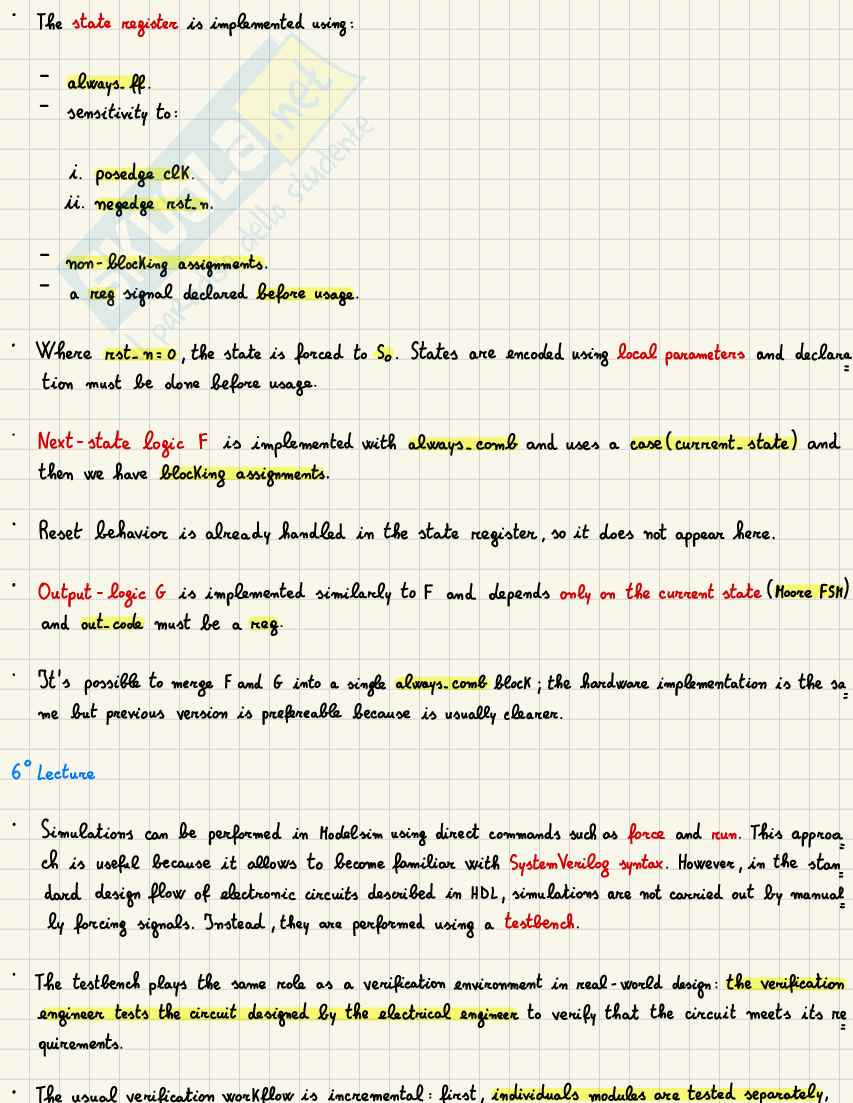 · The state register is implemented using:
- always_ff.
- sensitivity to:
i. posedge clk.
ii. negedge rst_n.
- non-blocking assignments.
- a reg signal declared before usage.
· Where rst_n=0, the state is forced to S0. States are encoded using local parameters and declara
tion must be done before usage.
· Next-state logic F is implemented with always_comb and uses a case(current_state) and
then we have blocking assignments.
· Reset behavior is already handled in the state register, so it does not appear here.
· Output-logic G is implemented similarly to F and depends only on the current state (Moore FSM)
and out_code must be a reg.
· It's possible to merge F and G into a single always_comb block; the hardware implementation is the sa
me but previous version is prefereable because is usually clearer.
6° Lecture
· Simulations can be performed in Modelsim using direct commands such as force and run. This approa
ch is useful because it allows to become familiar with SystemVerilog syntax. However, in the stan
dard design flow of electronic circuits described in HDL, simulations are not carried out by manual
ly forcing signals. Instead, they are performed using a testbench.
· The testbench plays the same role as a verification environment in real-world design: the verification
engineer tests the circuit designed by the electrical engineer to verify that the circuit meets its re
quirements.
· The usual verification workflow is incremental: first, individuals modules are tested separately,
SKUOLA.net
il paradiso dello studente